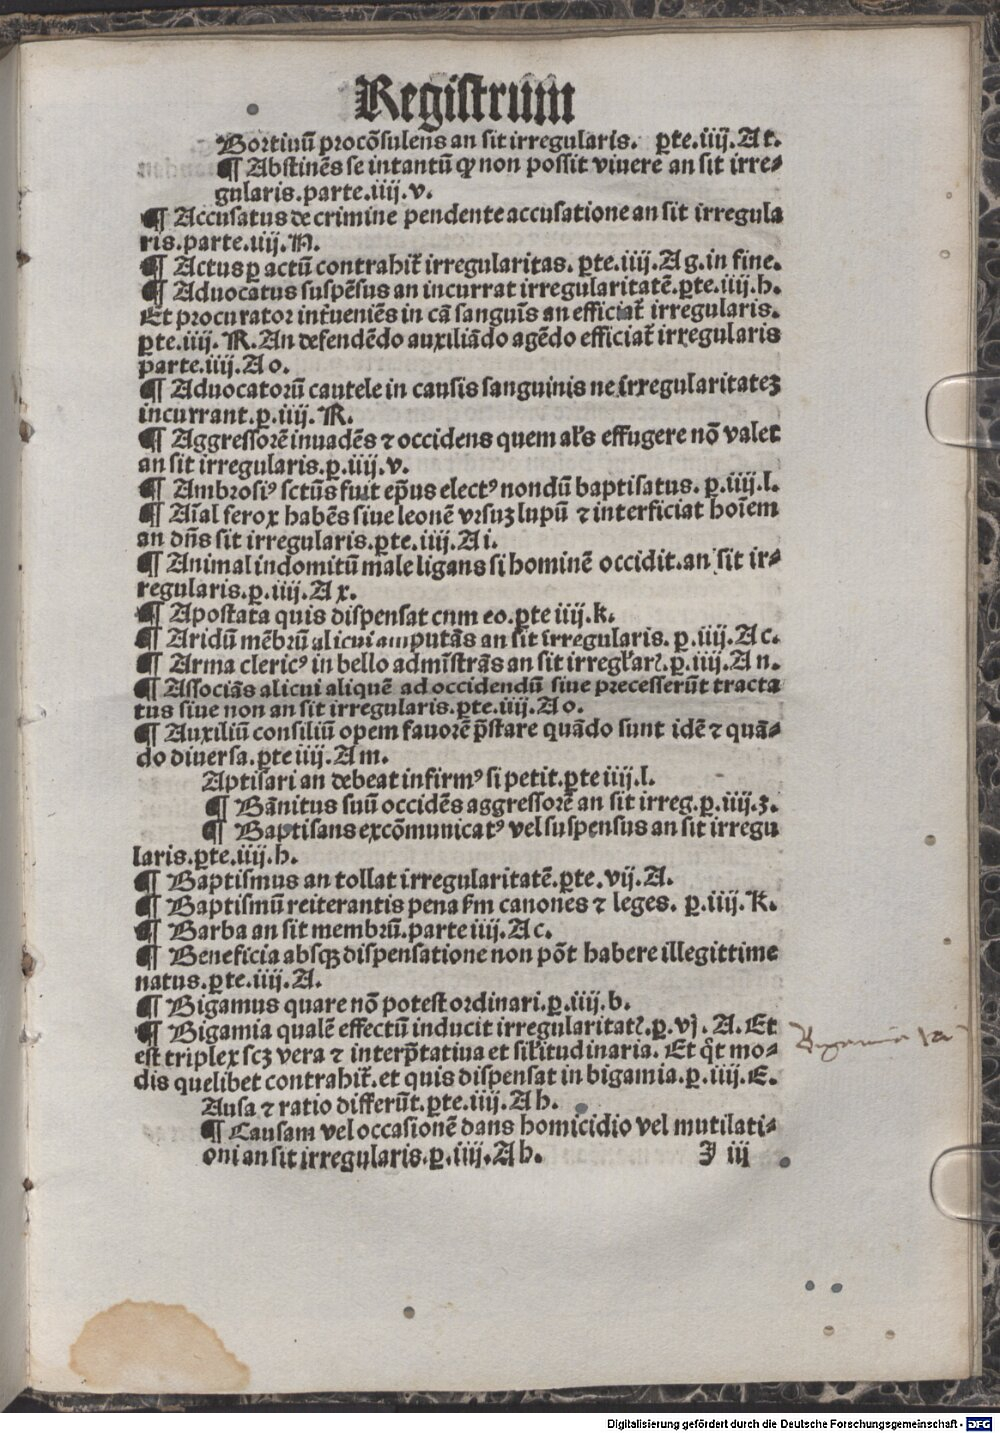 Registrum
Bortiuū procōsulens an sit irregularis. ꝑte.iiij.A t.
¶ Abstinēs se intantū ꝙ non possit viuere an sit irre⸗
gularis.parte.iiij.v.
¶ Accusatus de crimine pendente accusatione an sit irregula
ris.parte.iiij.N.
¶ Actus ꝑ actū contrahit̄ irregularitas. ꝑte.iiij.A g.in fine.
¶ Aduocatus suspēsus an incurrat irregularitatē.ꝑte.iiij.h.
Et procurator int̄ueniēs in cā sanguīs an efficiat̄ irregularis.
ꝑte.iiij. R.An defendēdo auxiliādo agēdo efficiat̄ irregularis
parte.iiij.A o.
¶ Aduocatorū cautele in causis sanguinis ne irregularitateꝫ
incurrant.ꝑ.iiij. R.
¶ Aggressorē inuadēs ⁊ occidens quem al's effugere nō valet
an sit irregularis.ꝑ.iiij.v.
¶ Ambrosiꝰ sctūs fuit ep̄us electꝰ nondū baptisatus. ꝑ.iiij.l.
¶ Aīal ferox habēs siue leonē vrsuꝫ lupū ⁊ interficiat hoīem
an dn̄s sit irregularis.ꝑte.iiij.A i.
¶ Animal indomitū male ligans si hominē occidit.an sit ir⸗
regularis.ꝑ.iiij.A x.
¶ Apostata quis dispensat cnm eo.ꝑte iiij.k.
¶ Aridū mēbrū alicui amputās an sit irregularis. ꝑ.iiij.A c.
¶ Arma clericꝰ in bello admīstrās an sit irregl'arꝭ.ꝑ.iiij.A n.
¶ Associās alicui aliquē ad occidendū siue precesserūt tracta
tus siue non an sit irregularis.ꝑte.iiij.A o.
¶ Auxiliū consiliū opem fauorē p̄stare quādo sunt idē ⁊ quā⸗
do diuersa.ꝑte iiij.A m.
Aptisari an debeat infirmꝰ si petit.ꝑte iiij.l.
¶ Bānitus suū occidēs aggressorē an sit irreg.ꝑ.iiij.ʒ.
¶ Baptisans excōmunicatꝰ vel suspensus an sit irregu
laris.ꝑte.iiij.h.
¶ Baptismus an tollat irregularitatē.ꝑte.vij.A.
¶ Baptismū reiterantis pena ẜm canones ⁊ leges. ꝑ.iiij.K.
¶ Barba an sit membrū.parte iiij.A c.
¶ Beneficia absqꝫ dispensatione non pōt habere illegittime
natus.ꝑte.iiij.A.
¶ Bigamus quare nō potest ordinari.ꝑ.iiij.b.
¶ Bigamia qualē effectū inducit irregularitatꝭ.ꝑ.vj. A.Et
est triplex scꝫ vera ⁊ interp̄tatiua et sil'itudinaria. Et q̊t mo⸗
dis quelibet contrahit̄.et quis dispensat in bigamia.ꝑ.iiij.E.
Ausa ⁊ ratio differūt.ꝑte.iiij.A h.
¶ Causam vel occasionē dans homicidio vel mutilati⸗
oni an sit irregularis.ꝑ.iiij.A h.
J iij
Digitalisierung gefördert durch die Deutsche Forschungsgemeinschaft - DFG